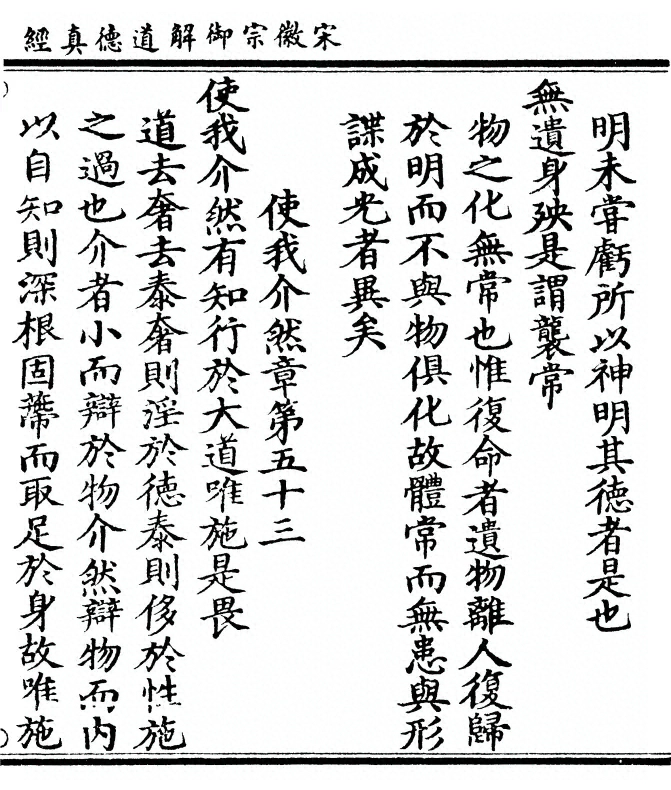 宋徽宗御解道德真經
明未甞虧所以神明其德者是也
無遺身殃是謂襲常
物之化無常也惟復命者遺物離人復歸
於明而不與物俱化故體常而無患與形
諜成光者異矣
使我介然章第五十三
使我介然有知行於大道唯施是畏
道去奢去泰奢則淫於德泰則侈於性施
之過也介者小而辯於物介然辯物而内
以自知則深根固蔕而取足於身故唯施